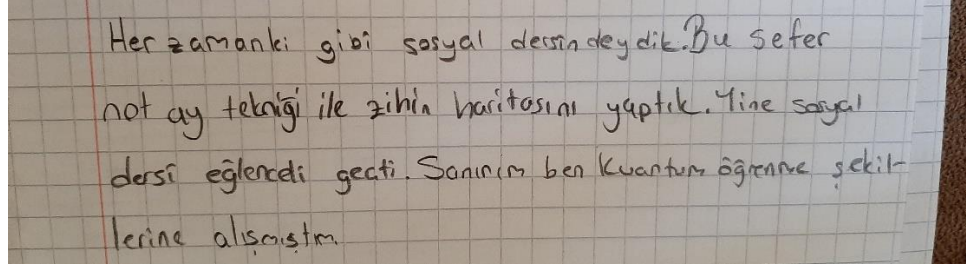 Her zamanki gibi sosyal dersindeydik. Bu sefer
not ay tekniği ile zihin haritasını yaptık. Yine sosyal
dersi eğlenceli geçti. Sanırım ben Kuantum öğrenme şekil-
lerine alışmıştım.